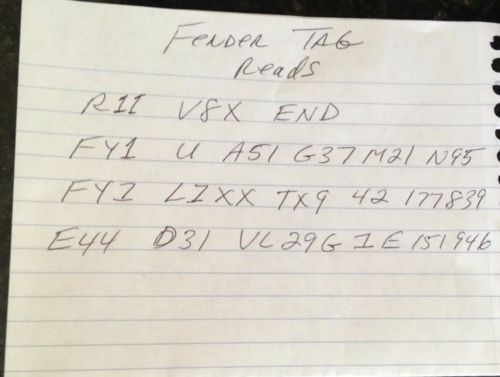 Fender TAG
Reads
R11 V8X END
FY1 U A51 G37 M21 N95
FY1 L1XX TX9 42 177839
E44 D31 VL29G 1E151946